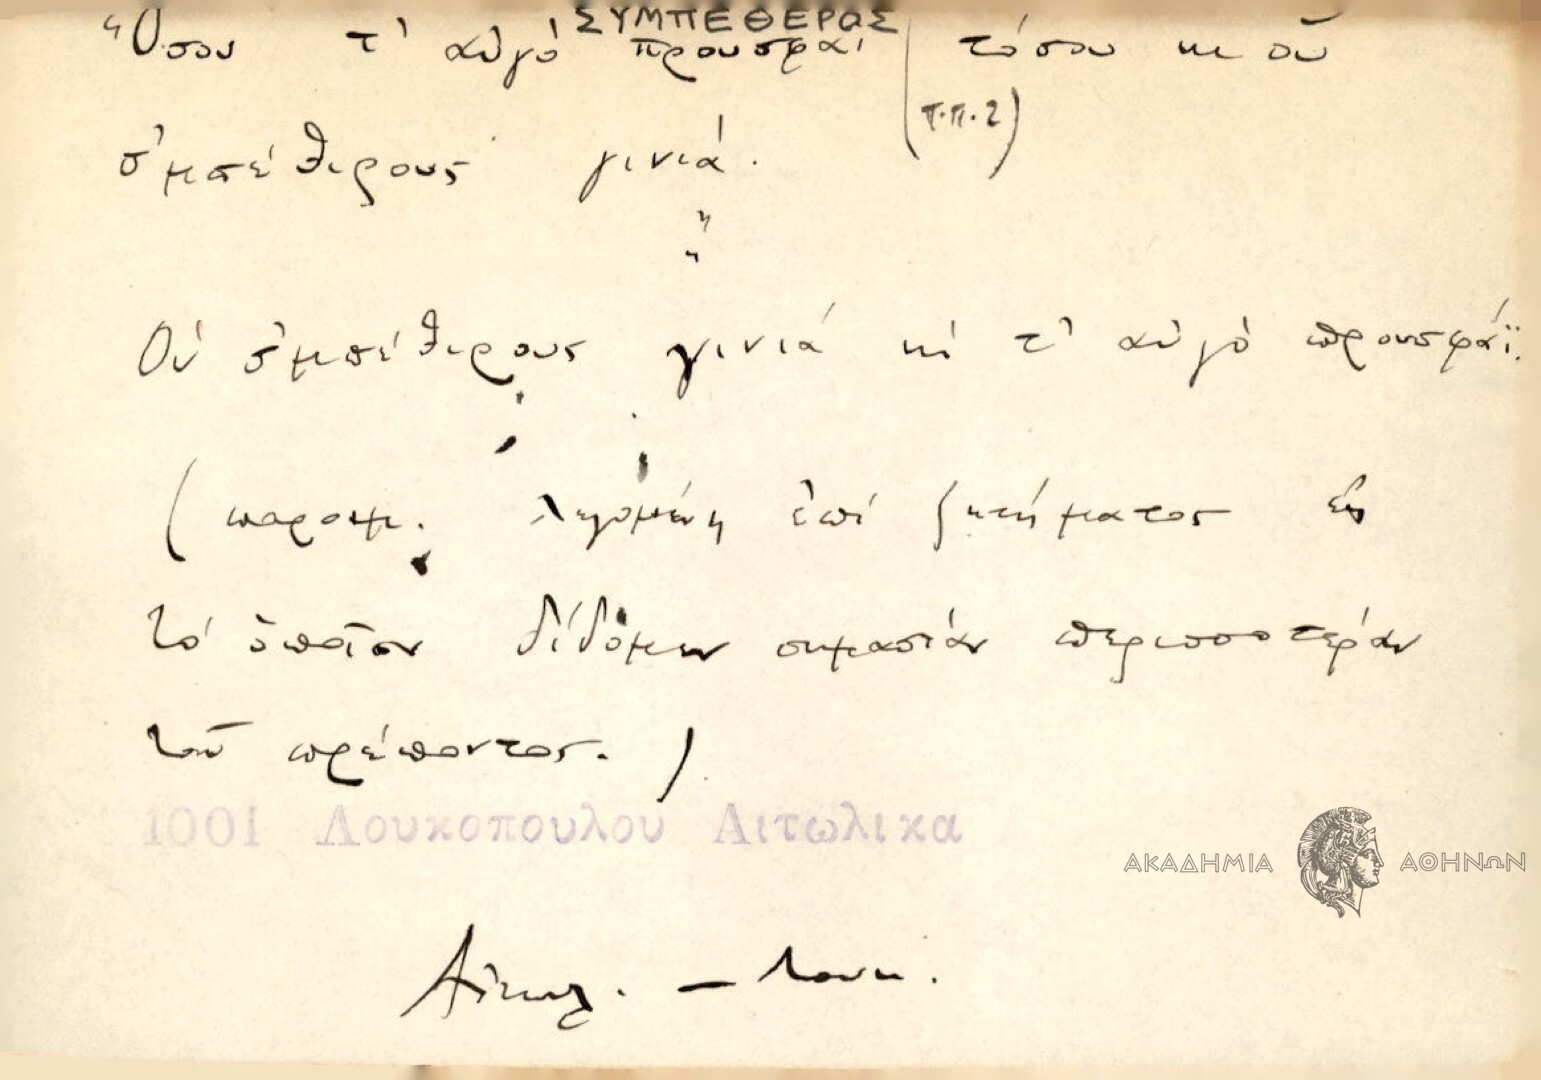 ΣΥΜΠΕΘΕΡΟΣ
Ὅσου τ' αὐγό προυσφαΐ τόσου κι οὑ
(π.π.2)
σ'μπέθιρους γινιά.
ἤ
Οὑ σ'μπέθιρους γινιά κι τ' αὐγό προυσφάϊ.
(παροιμ. λεγομένη ἐπί ζητήματος εἰς
τό ὁποῖον δίδομεν σημασίαν περισσοτέραν
τοῦ πρέποντος.)
1001 Λουκοπουλου Αιτωλικα
ΑΚΑΔΗΜΙΑ ΑΘΗΝΩΝ
Αἰτωλ. – Λουκ.